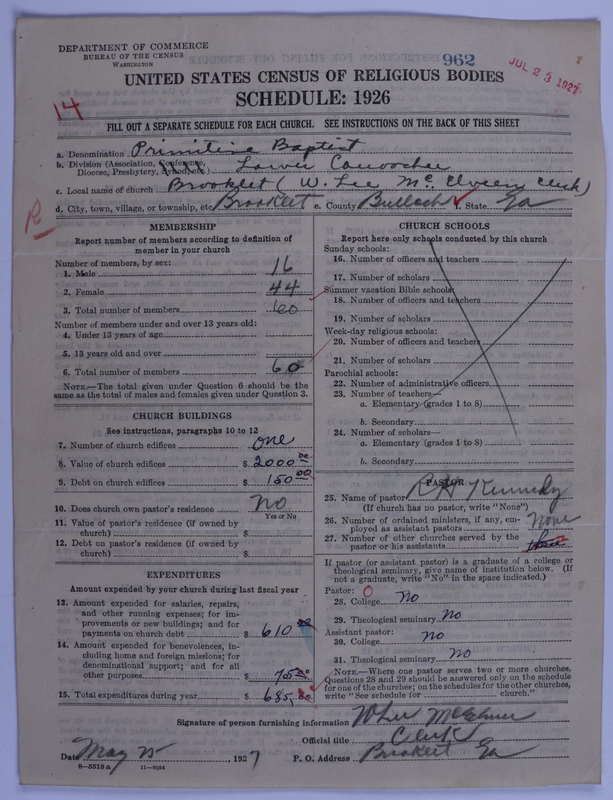 DEPARTMENT OF COMMERCE
BUREAU OF THE CENSUS
WASHINGTON
962
JUL 23 1927
UNITED STATES CENSUS OF RELIGIOUS BODIES
SCHEDULE: 1926
14
FILL OUT A SEPARATE SCHEDULE FOR EACH CHURCH. SEE INSTRUCTIONS ON THE BACK OF THIS SHEET
a. Denomination Primitive Baptist
b. Division (Association, Conference, Diocese, Presbytery, Synod, etc.) Lower Canoochee
c. Local name of church Brooklet (W. Lee McElveen Clerk)
d. City, town, village, or township, etc. Brooklet e. County Bulloch f. State Ga
R
MEMBERSHIP
Report number of members according to definition of
member in your church
Number of members, by sex:
1. Male 16
2. Female 44
3. Total number of members 60
Number of members under and over 13 years old:
4. Under 13 years of age
5. 13 years old and over
6. Total number of members 60
NOTE.—The total given under Question 6 should be the
same as the total of males and females given under Question 3.
CHURCH BUILDINGS
See instructions, paragraphs 10 to 12
7. Number of church edifices one
8. Value of church edifices $ 2000 00
9. Debt on church edifices $ 150 00
10. Does church own pastor's residence? No
Yes or No
11. Value of pastor's residence (if owned by
church) $
12. Debt on pastor's residence (if owned by
church) $
EXPENDITURES
Amount expended by your church during last fiscal year
13. Amount expended for salaries, repairs,
and other running expenses; for im-
provements or new buildings; and for
payments on church debt $ 610 00
14. Amount expended for benevolences, in-
cluding home and foreign missions; for
denominational support; and for all
other purposes $ 75 00
15. Total expenditures during year $ 685.00
CHURCH SCHOOLS
Report here only schools conducted by this church
Sunday schools:
16. Number of officers and teachers
17. Number of scholars
Summer vacation Bible schools:
18. Number of officers and teachers
19. Number of scholars
Week-day religious schools:
20. Number of officers and teachers
21. Number of scholars
Parochial schools:
22. Number of administrative officers
23. Number of teachers—
a. Elementary (grades 1 to 8)
b. Secondary
24. Number of scholars—
a. Elementary (grades 1 to 8)
b. Secondary
PASTOR
25. Name of pastor R H Kennedy
(If church has no pastor, write "None")
26. Number of ordained ministers, if any, em-
ployed as assistant pastors None
27. Number of other churches served by the
pastor or his assistants three
If pastor (or assistant pastor) is a graduate of a college or
theological seminary, give name of institution below. (If
not a graduate, write "No" in the space indicated.)
Pastor: O
28. College No
29. Theological seminary No
Assistant pastor:
30. College No
31. Theological seminary No
NOTE.—Where one pastor serves two or more churches,
Questions 28 and 29 should be answered only on the schedule
for one of the churches; on the schedules for the other churches,
write "See schedule for church."
Signature of person furnishing information W Lee McElveen
Official title Clerk
Date May 25, 1927 P. O. Address Brooklet Ga
8—5518a 11—9024